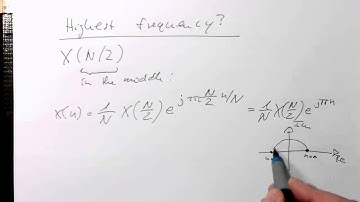 Highest frequency?
X(N/2)
in the middle:
x(n) = 1/N X(N/2) e^{jπ N/2 n/N} = 1/N X(N/2) e^{jπn}
Im
Re